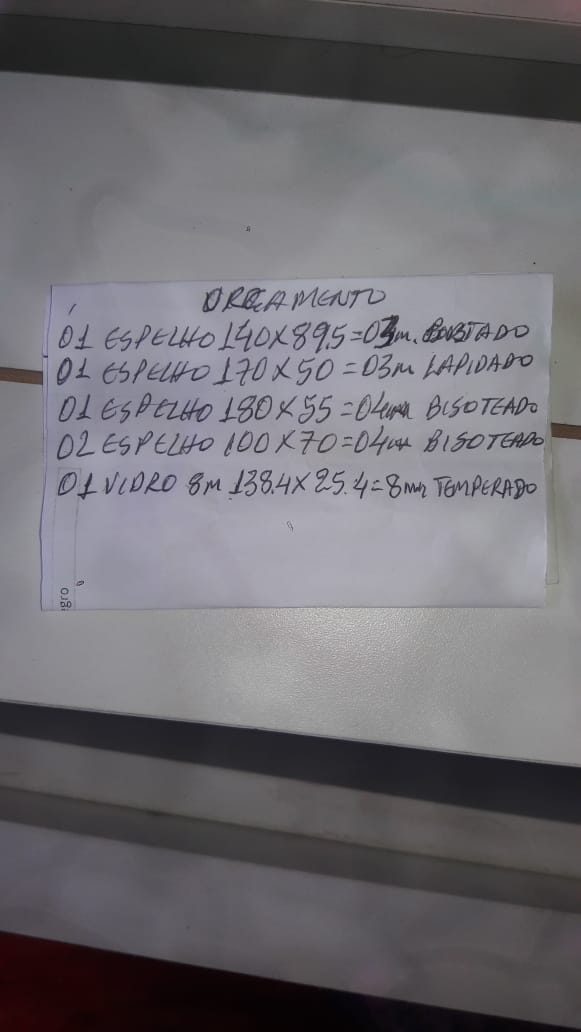 ORCAMENTO
01 ESPELHO 140X89.5=03m.
01 ESPELHO 170X50=03m LAPIDADO
01 ESPELHO 180X55=04mm BISOTEADO
02 ESPELHO 100X70=04mm BISOTEADO
01 VIDRO 8m 138.4X25.4=8mm TEMPERADO
gro